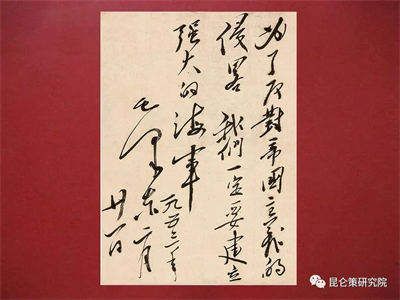 为了反對帝國主義的
侵畧 我們一定要建立
强大的海軍
毛泽东
一九五三年二月
廿一日
昆仑策研究院